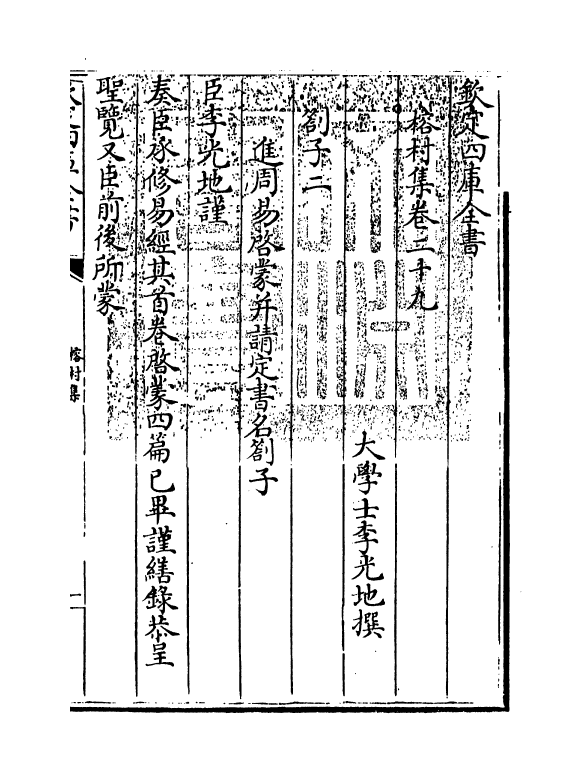 欽定四庫全書
榕村集卷二十九
大學士李光地撰
劄子二
進周易啓蒙并請定書名劄子
臣李光地謹
奏臣承修易經其首卷啓蒙四篇已畢謹繕錄恭呈
聖覽又臣前後所蒙
榕村集